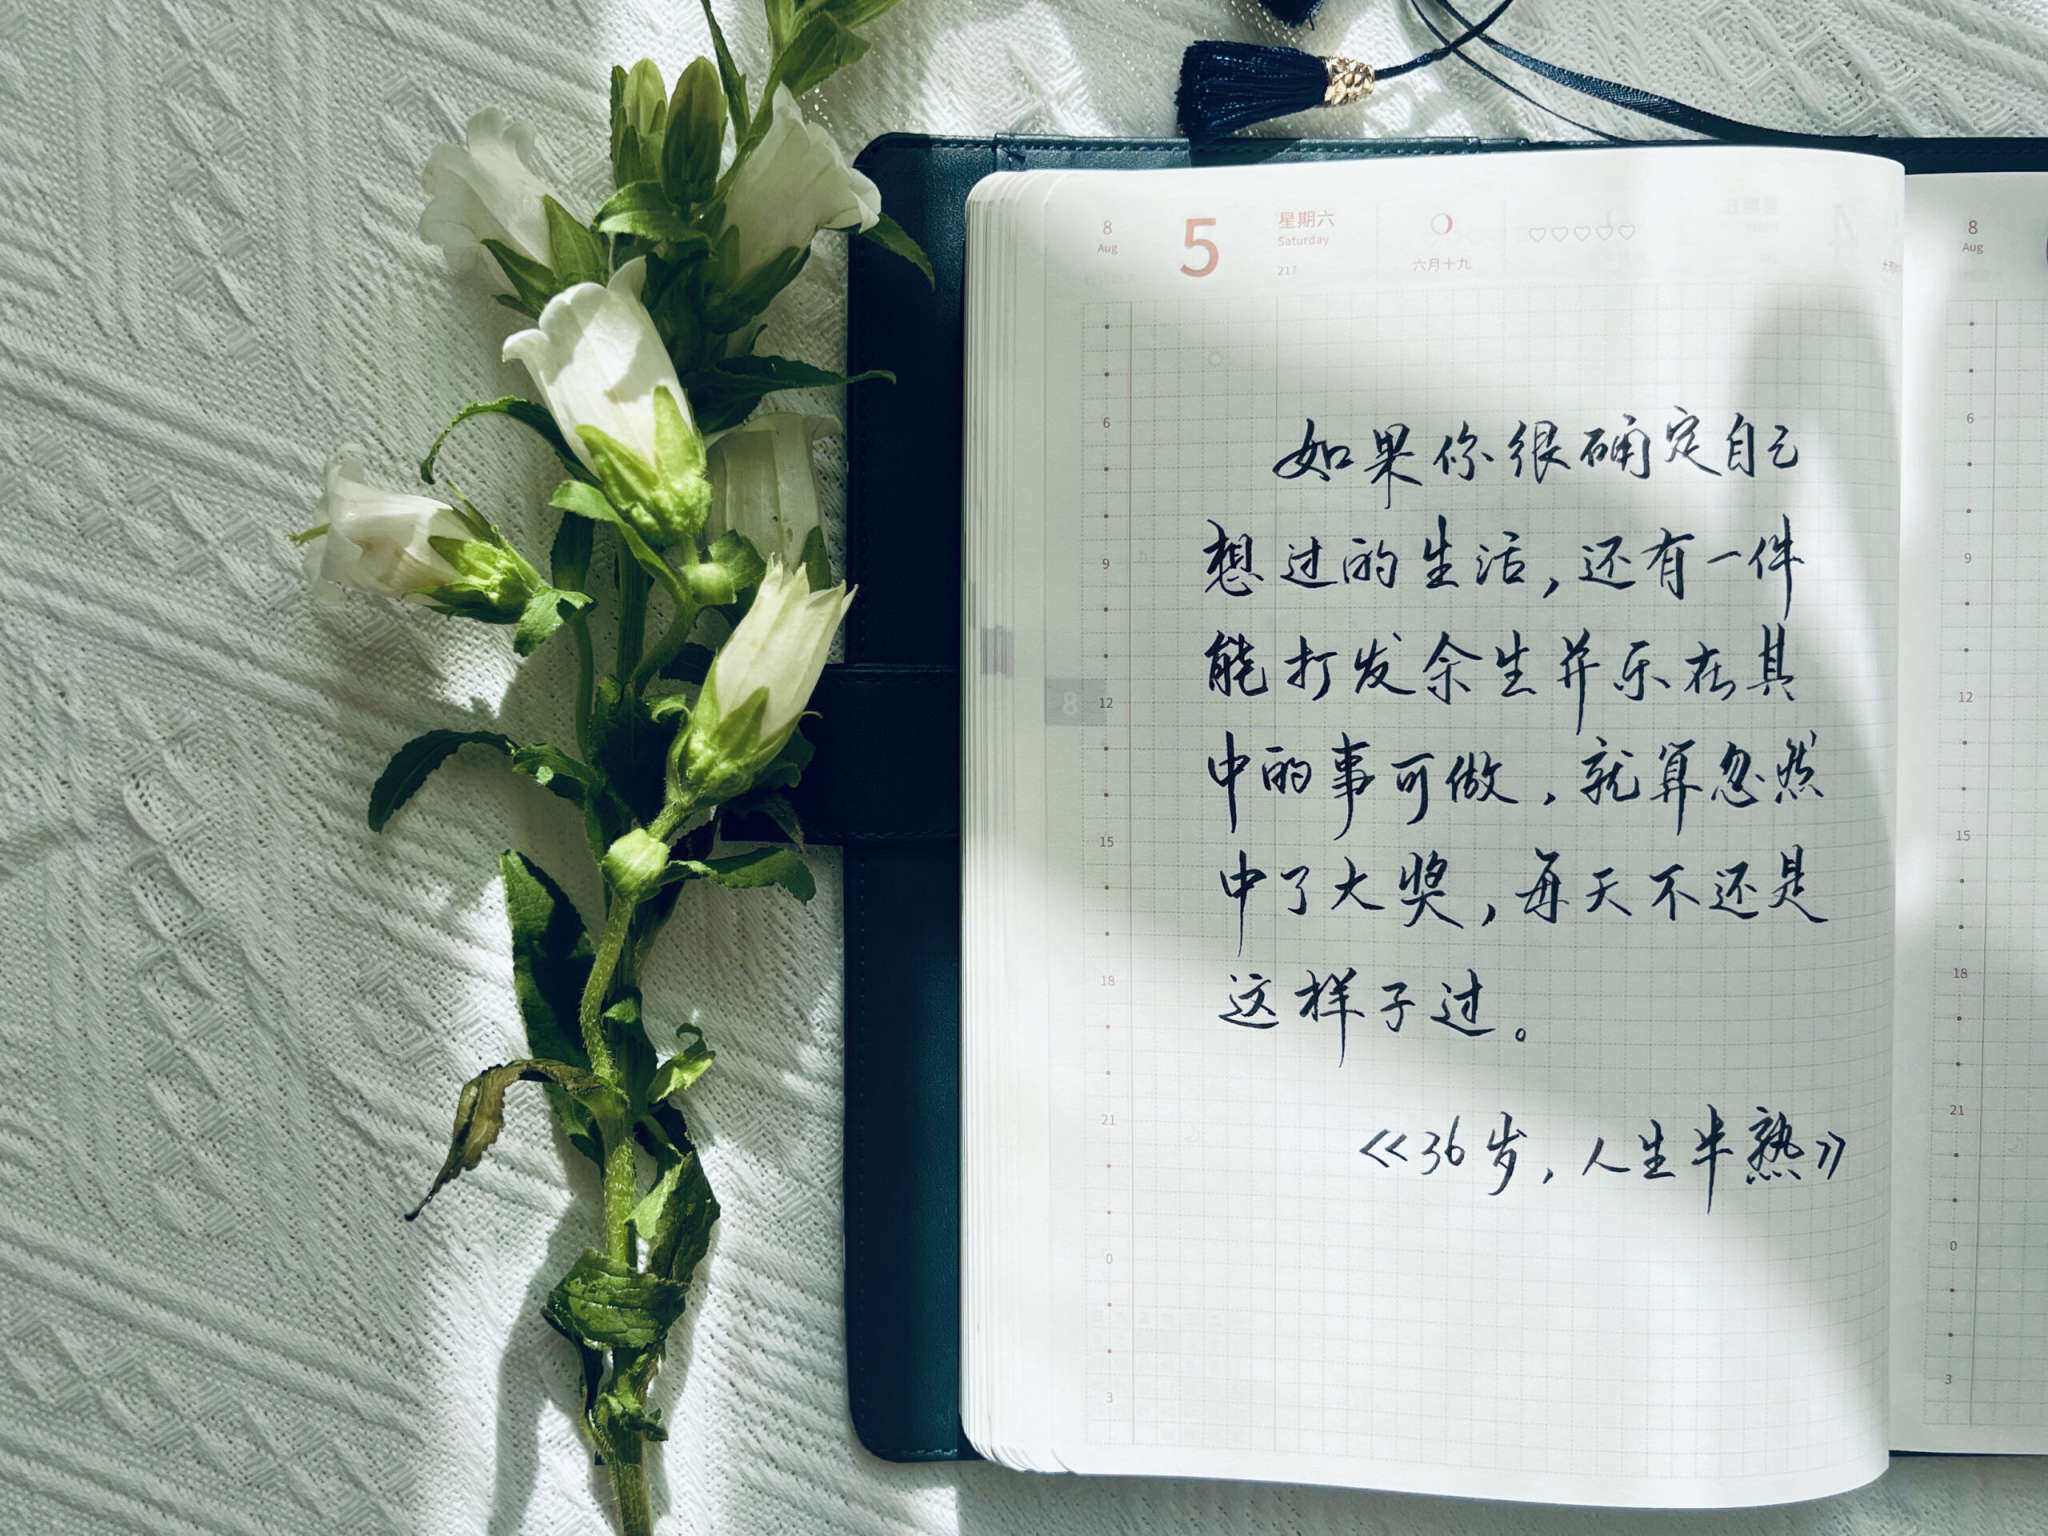 8
Aug
5
星期六
Saturday
217
六月十九
8
Aug
如果你很确定自己
想过的生活，还有一件
能打发余生并乐在其
中的事可做，就算忽然
中了大奖，每天不还是
这样子过。
《36岁，人生半熟》
6
9
12
15
18
21
0
3
8
6
9
12
15
18
21
0
3